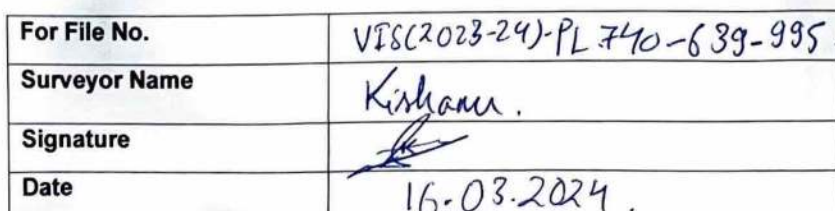 For File No. VIS(2023-24)-PL740-639-995
Surveyor Name Kishanu.
Signature
Date 16-03-2024.